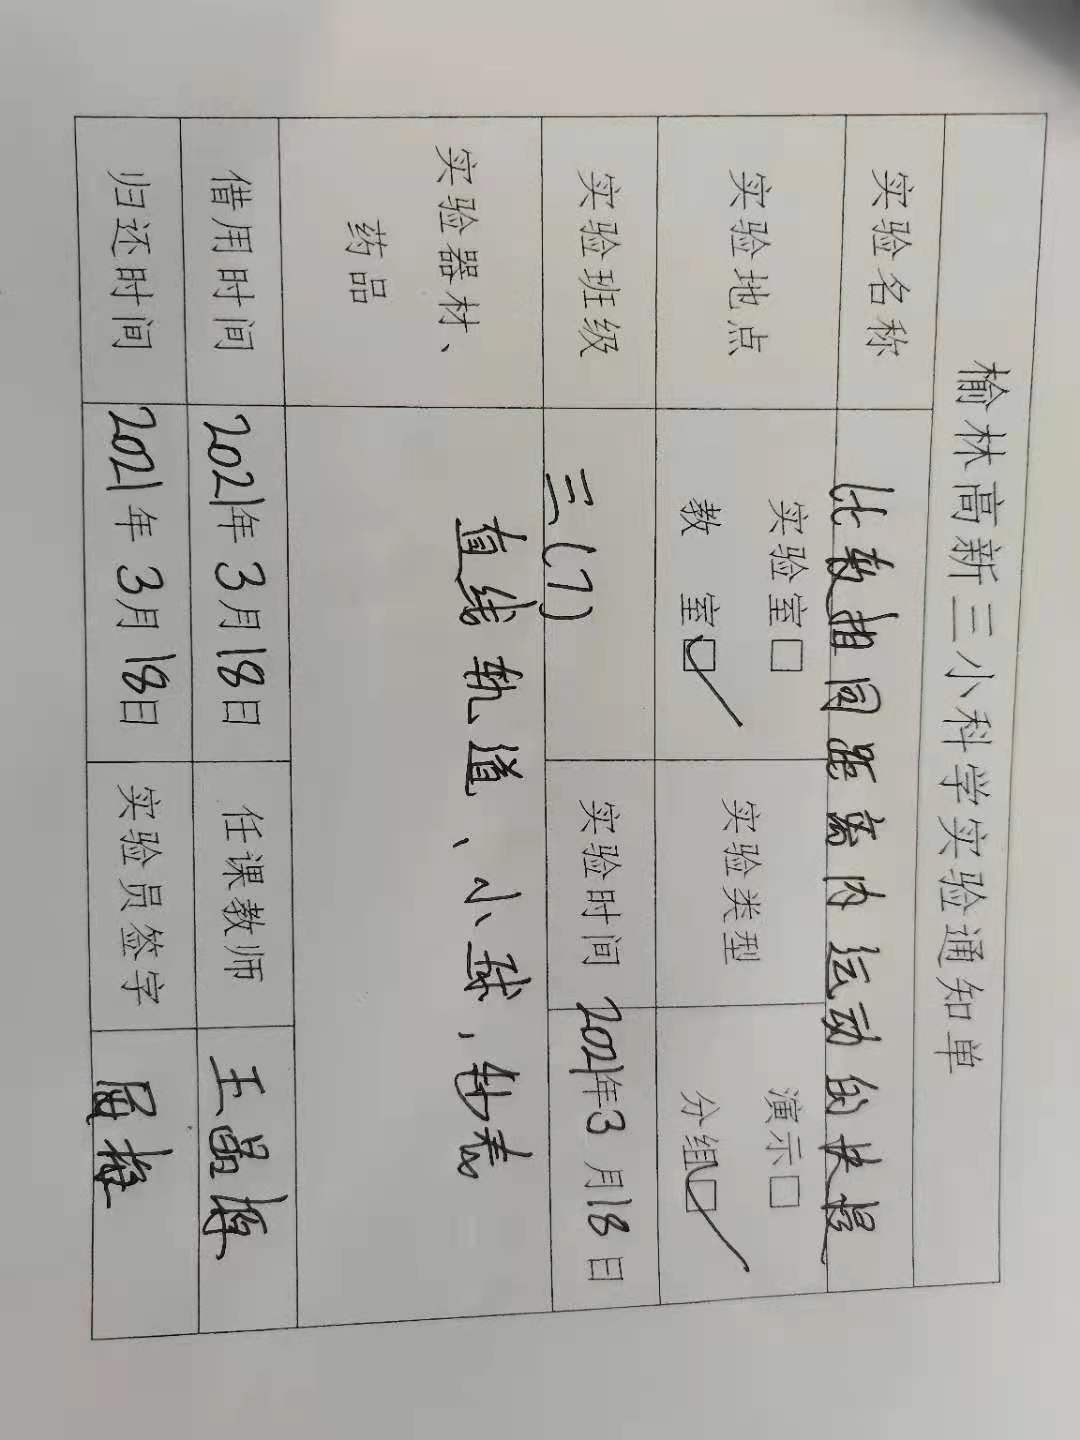 榆林高新三小科学实验通知单
实验名称 比较相同距离内运动的快慢
实验地点 实验室□ 教 室☑ 实验类型 演示□ 分组☑
实验班级 三(7) 实验时间 2021年3月18日
实验器材、
药品
直线轨道、小球,秒表
借用时间 2021年3月18日 任课教师 王
归还时间 2021年3月18日 实验员签字